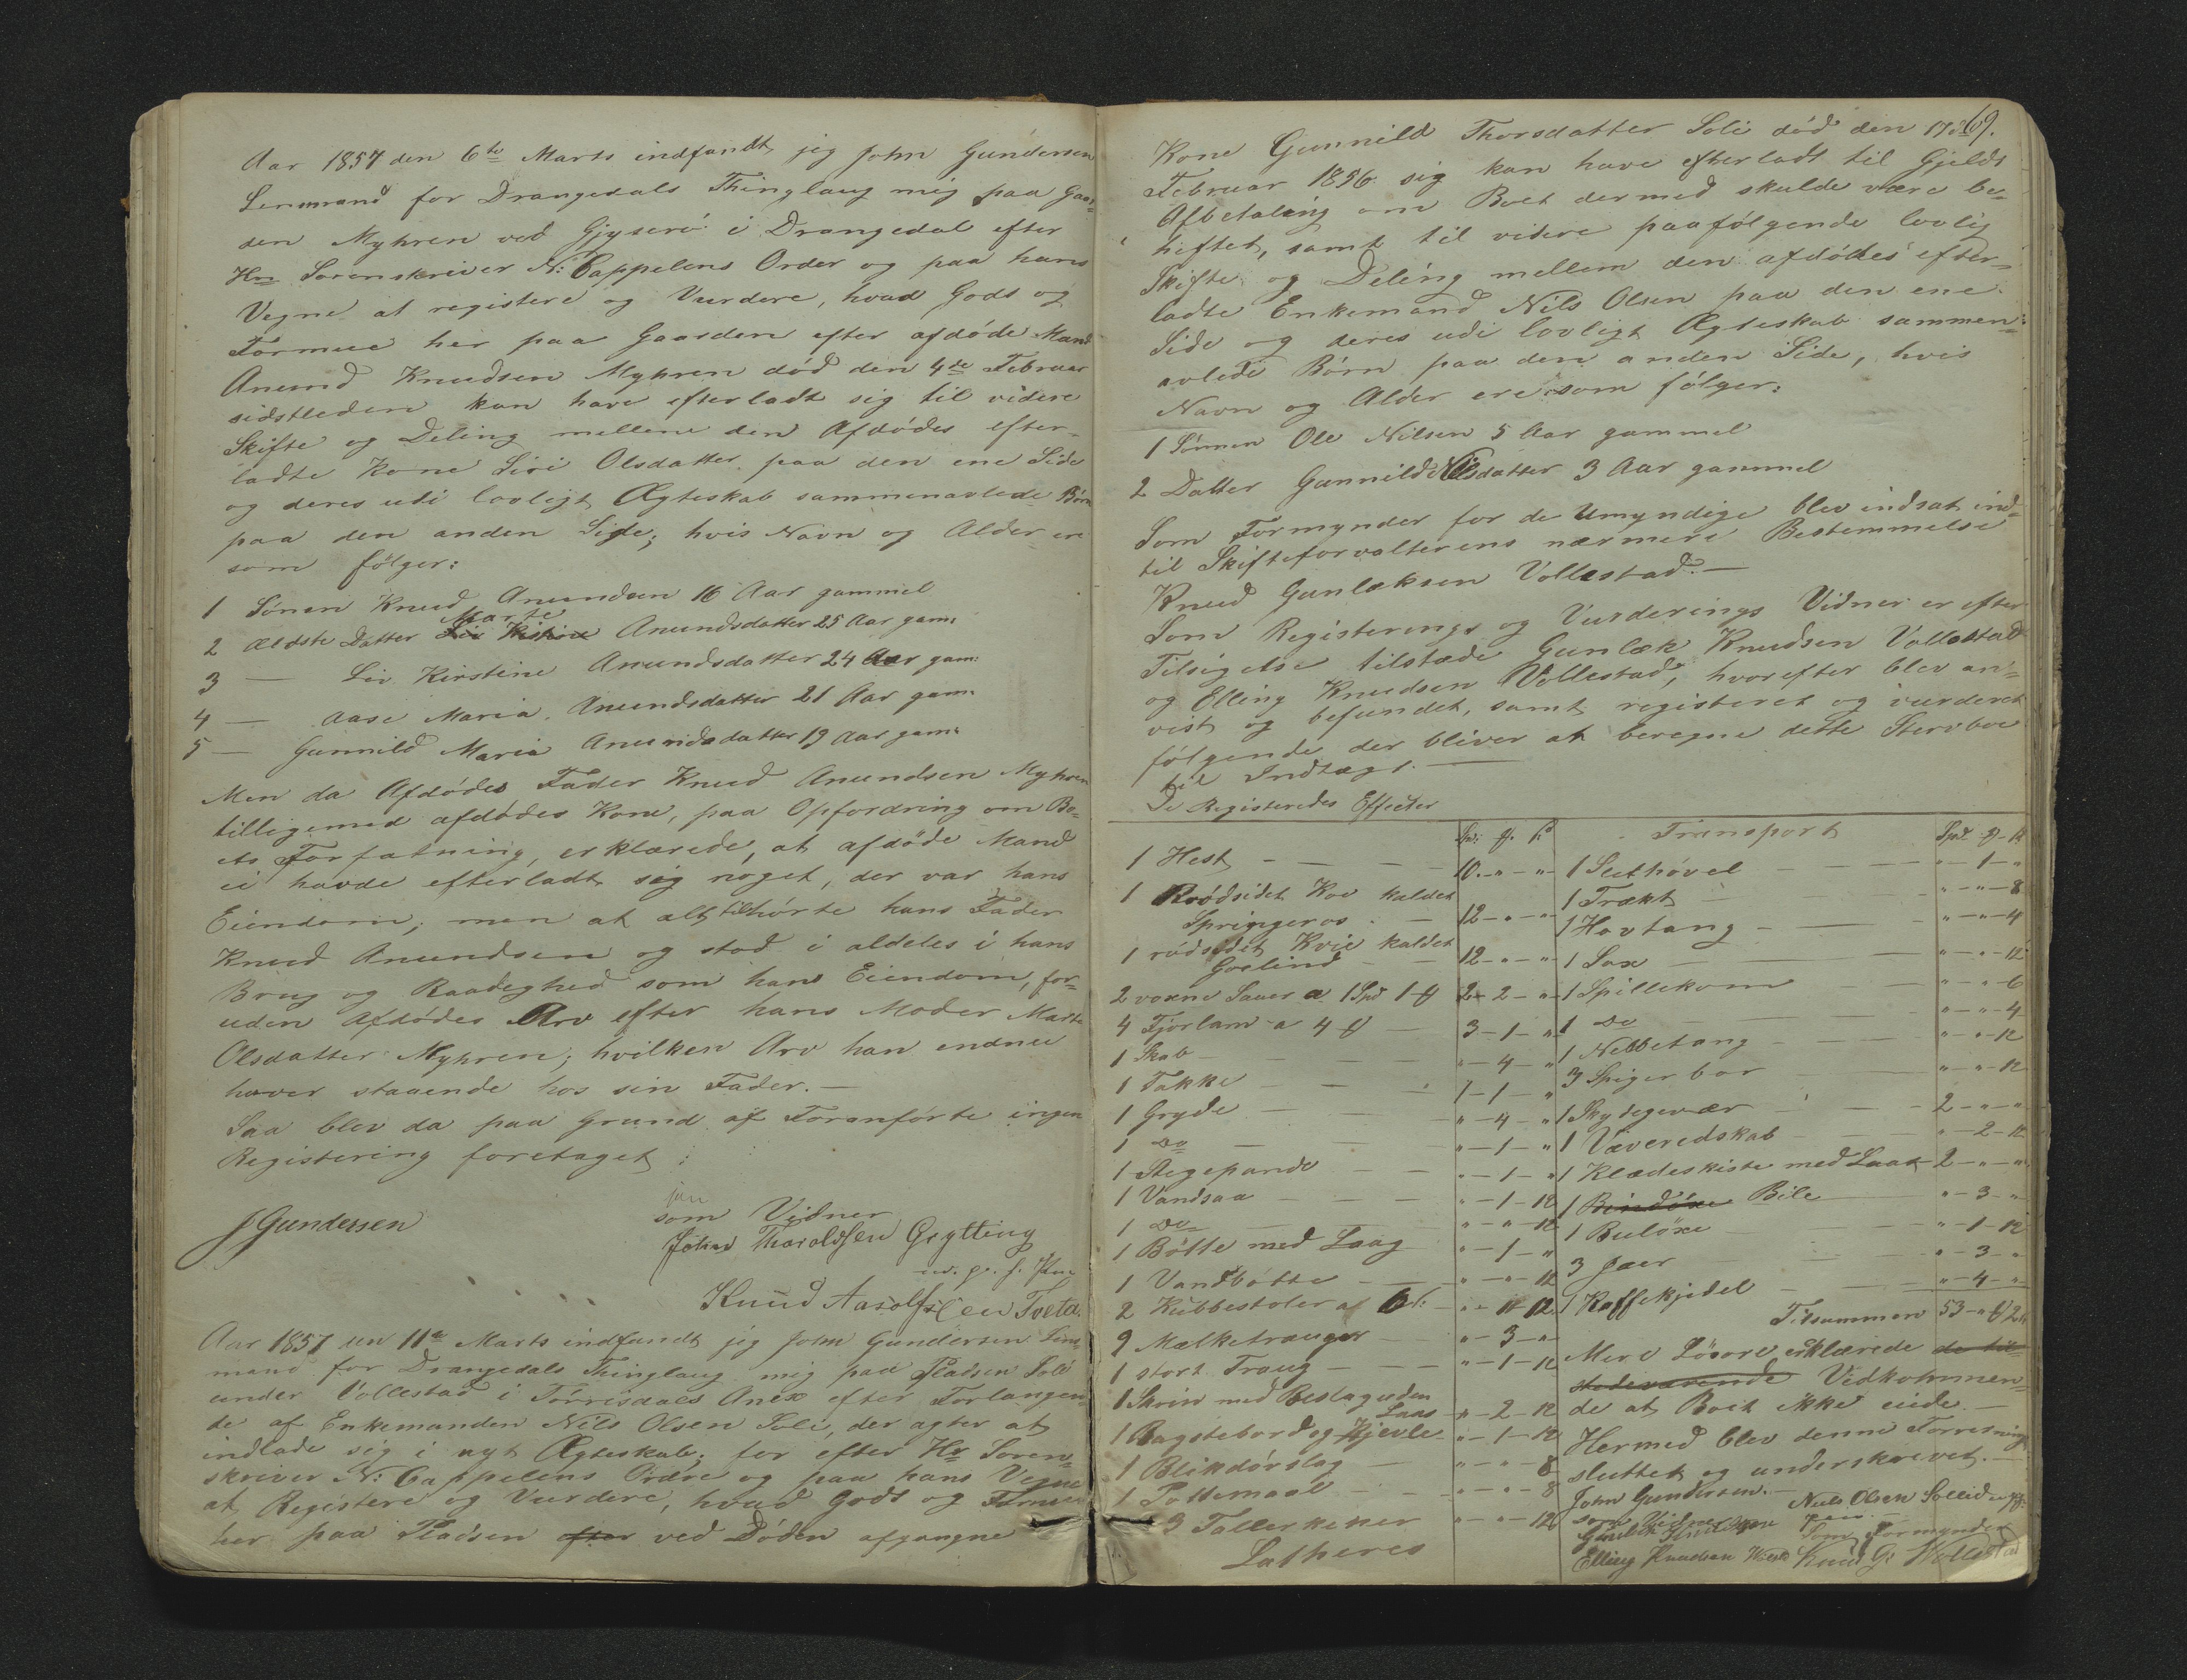 Aar 1857 den 6te Marts indfandt jeg John Gundersen
Lensmand for Drangedals Thinglaug mig paa Gaar=
den Myhren ved Gjyserö i Drangedal efter
Hr Sorenskriver N: Cappelens Order og paa hans
Vegne at registere og Vurdere, hvad Gods og
Formue her paa Gaarden efter afdöde Mand
Anund Knudsen Myhren död den 4de Februar
sidstleden kan have efterladt sig til videre
Skifte og Deling mellem den Afdödes efter=
ladte Kone Siri Olsdatter paa den ene Side
og deres udi lovligt Ægteskab sammenavlede Börn
paa den anden Side; hvis Navn og Alder er
som fölger:
1 Sönen Knud Anundsen 16 Aar gammel
2 Ældste Datter Marte Anundsdatter 25 Aar gam:
3 — Liv Kirstine Anundsdatter 24 Aar gam:
4 — Aase Maria Anundsdatter 21 Aar gam:
5 — Gunnild Maria Anundsdatter 19 Aar gam:
Men da Afdödes Fader Knud Anundsen Myhren
tilligemed afdödes Kone, paa Opfordring om Bo=
ets Forfatning, erklærede, at afdöde Mand
ei havde efterladt sig noget, der var hans
Eiendom; men at alt tilhörte hans Fader
Knud Anundsen og stod i aldeles i hans
Brug og Raadighed som hans Eiendom, for=
uden Afdödes Arv efter hans Moder Marte
Olsdatter Myhren; hvilken Arv han endnu
haver staaende hos sin Fader.—
Saa blev da paa Grund af Foranförte ingen
Registering foretaget :
JGundersen
som Vidner
Johan Tharoldsen Grytting
Knud Aasolfsen Tveta
Aar 1857 den 11te Marts indfandt jeg John Gundersen Lens
mand for Drangedals Thinglaug mig paa Pladsen Soli
under Vollestad i Törrisdals Anex efter Forlangen=
de af Enkemanden Nils Olsen Soli, der agter at
indlade sig i nyt Ægteskab; for efter Hr Soren=
skriver N: Cappelens Ordre og paa hans Vegne
at Registere og Vurdere, hvad Gods og Formue
her paa Pladsen efter ved Döden afgangne
69.
Kone Gunnild Thorsdatter Soli död den 17de
Februar 1856 sig kan have efterladt til Gjelds
Afbetaling om Boet dermed skulde være be=
heftet, samt til videre paafölgende lovlig
Skifte og Deling mellem den afdödes efter=
ladte Enkemand Nils Olsen paa den ene
Side og deres udi lovligt Ægteskab sammen=
avlede Börn paa den anden Side, hvis
Navn og Alder ere som fölger:
1 Sönnen Ole Nilsen 5 Aar gammel
2 Datter Gunnild Nilsdatter 3 Aar gammel
Som Formynder for de Umyndige blev indsat ind=
til Skifteforvalterens nærmere Bestemmelse
Knud Gunleksen Vollestad.—
Som Registerings og Vurderings Vidner er efter
Tilsigelse tilstæde Gunlek Knudsen Vollestad
og Elling Knudsen Vollestad, hvorefter blev an=
vist og befundet, samt registeret og vurderet
fölgende der bliver at beregne dette Stervboe
til Indtægt.—
De Registeredes Effecter
1 Hest — 10 - " - "
1 Röödsidet Kov kaldet
Springeros — 12 - " - "
1 rödsidet Kvie kaldet
Goelind — 12 - " - "
2 voxne Sauer a 1 Spd 1 — 2 - 2 - "
4 Fjörlam a 4 — 3 - 1 - "
1 Skab — " - 4 - "
1 Takke — 1 - 1 - "
1 Gryde — " - 4 - "
1 Do — " - 1 - "
1 Stegepande — " - 1 - "
1 Vandsaa — " - 1 - 12
1 Do — " - " - 12
1 Bötte med Laag — " - 1 - "
1 Vandbötte — " - " - 12
2 Kubbestoler a 6 — " - " - 12
9 Mælketrauger — " - 3 - "
1 stort Traug — " - 1 - 12
1 Skrin med Beslag uden
Laas — " - 2 - 12
1 Bagstebord og Kjevle — " - 1 - 12
1 Blikdörslag — " - " - 8
1 Pottemaal — " - " - 8
3 Tallerkener — " - " - 12
Latheres
Transport
1 Slethövel — " - 1 - "
1 Trækt — " - " - 8
1 Hovtang — " - " - 4
1 Sax — " - " - 12
1 Spillekom — " - " - 6
1 Do — " - " - 4
1 Nebbetang — " - " - 12
3 Spigerbor — " - " - 12
1 Skydegevær — 2 - " - "
1 Væveredskab — " - 2 - 12
1 Klædeskiste med Laas — 2 - " - "
1 Bindöxe Bile — " - 3 - "
1 Bulöxe — " - 1 - 12
3 Jaer — " - 3 - "
1 Kaffekjedel — " - 4 - "
Tilsammen 53 - "
Mere Lösöre erklærede de til=
stedeværende Vedkommen=
de at Boet ikke eiede.—
Hermed blev denne Forretning
sluttet og underskrevet.—
John Gundersen.—
som Vidner
Niels Olsen
Som Formynder
Elling Knudsen
Knud G: Wollestad